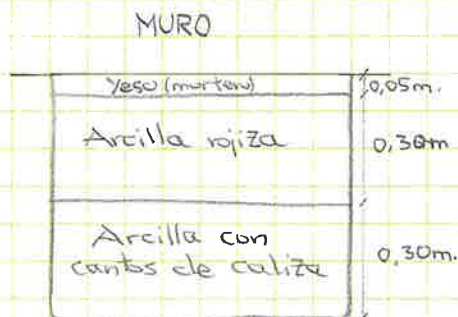 MURO
Yeso (mortero)
0,05m.
Arcilla rojiza
0,30m
Arcilla con
cantos de caliza
0,30m.